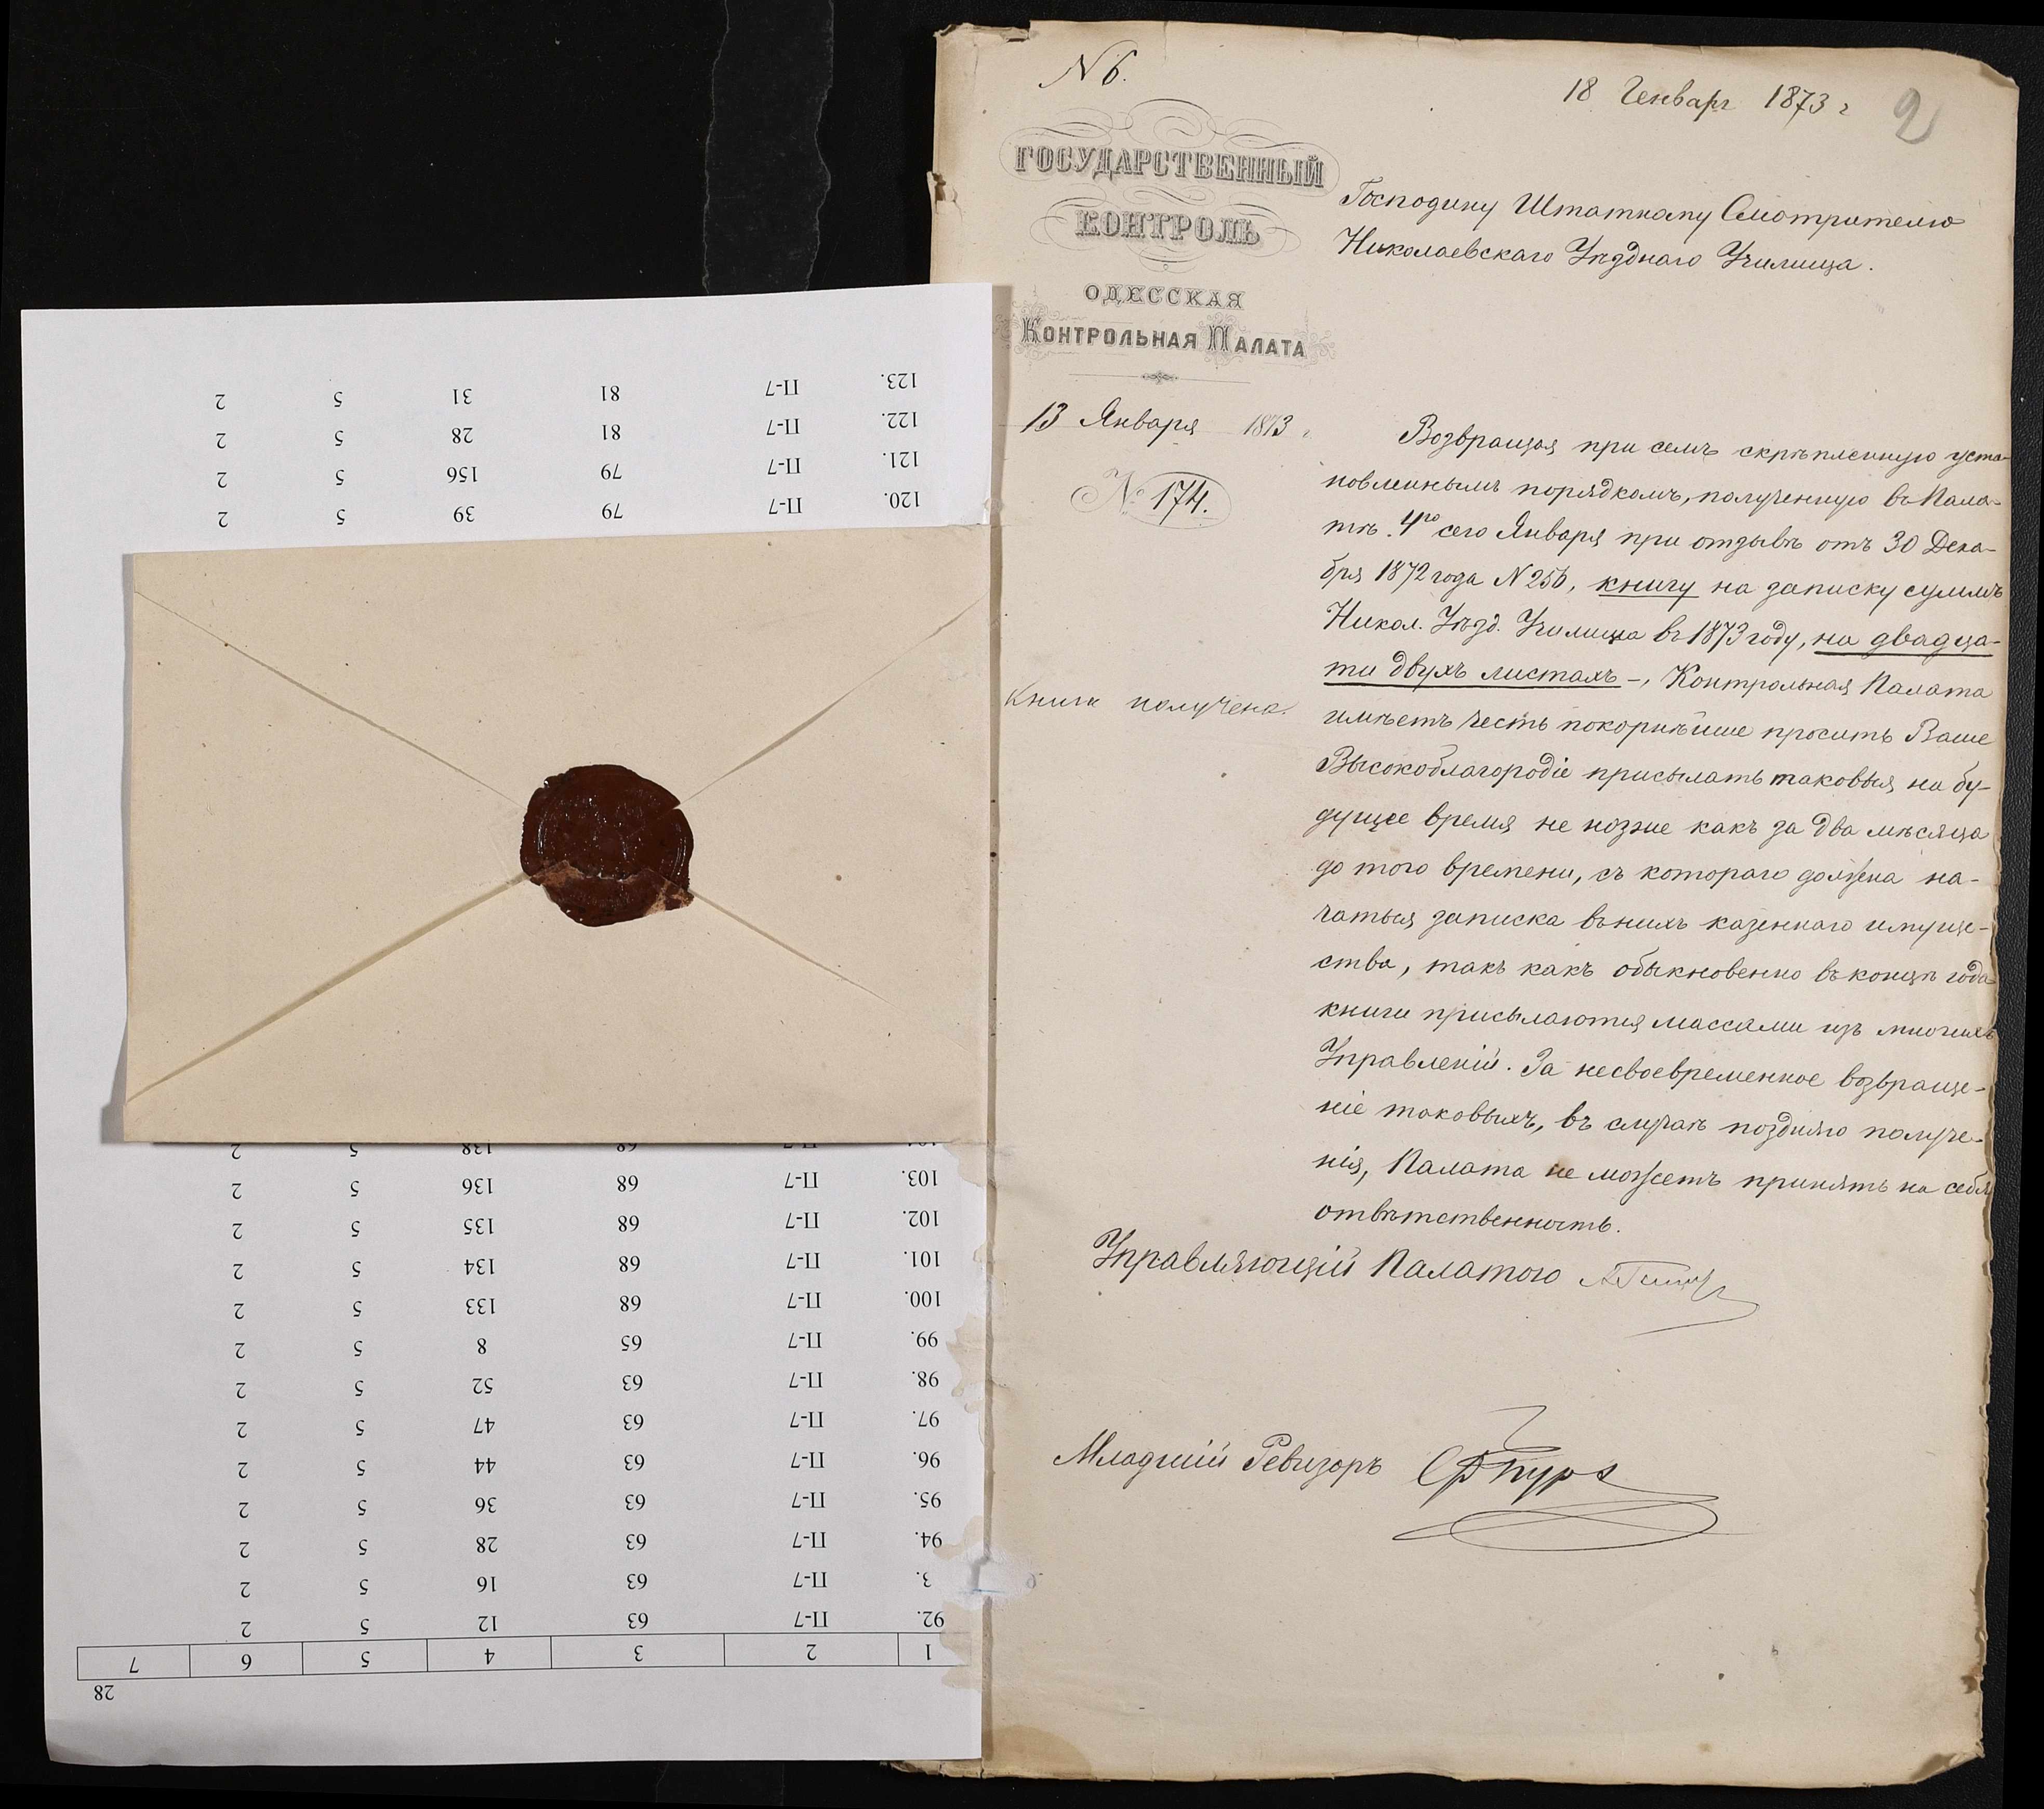 N 6.
18 Генваря 1873 г
2
ГОСУДАРСТВЕННЫЙ
КОНТРОЛЬ
ОДЕССКАЯ
КОНТРОЛЬНАЯ ПАЛАТА
13 Января 1873 г.
№ 174.
Господину Штатному Смотрителю
Николаевскаго Уѣзднаго Училища.
Возвращая при семъ скрѣпленную уста-
новленнымъ порядкомъ, полученную въ Пала-
тѣ 4го сего Января при отзывѣ отъ 30 Дека-
бря 1872 года N 256, книгу на записку суммъ
Никол. Уѣзд. Училища въ 1873 году, на двадца-
ти двухъ листахъ -, Контрольная Палата
имѣетъ честь покорнѣйше просить Ваше
Высокоблагородіе присылать таковыя на бу-
дущее время не позже какъ за два мѣсяца
до того времени, съ котораго должна на-
чаться записка въ нихъ казеннаго имуще-
ства, такъ какъ обыкновенно въ концѣ года
книги присылаются массами изъ многихъ
Управленій. За несвоевременное возвраще-
ніе таковыхъ, въ случаѣ поздняго получе-
нія, Палата не можетъ принять на себя
отвѣтственность.
Книга получена.
Управляющій Палатою
Младшій Ревизоръ
28
1 2 3 4 5 6 7
92. П-7 63 12 5 2
3. П-7 63 16 5 2
94. П-7 63 28 5 2
95. П-7 63 36 5 2
96. П-7 63 44 5 2
97. П-7 63 47 5 2
98. П-7 63 52 5 2
99. П-7 65 8 5 2
100. П-7 68 133 5 2
101. П-7 68 134 5 2
102. П-7 68 135 5 2
103. П-7 68 136 5 2
П-7 68 138 5 2
120. П-7 79 39 5 2
121. П-7 79 156 5 2
122. П-7 81 28 5 2
123. П-7 81 31 5 2